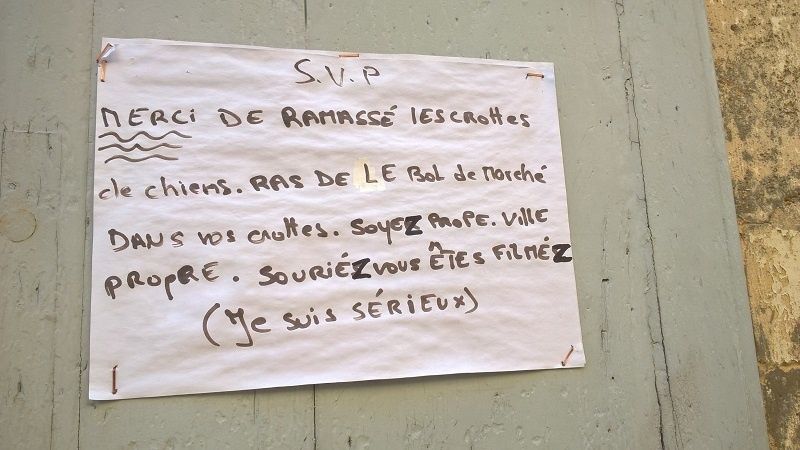 S.V.P
MERCi DE RAMASSÉ lEScROttes
de chiens. RAS DE LE Bol de Morché
DANS vos crottes. SOYEZ PROPE. ViLLE
PROPRE. SOURIÉZ VOUS ÊTES FiLMÉZ
(Je suis SÉRiEUx)